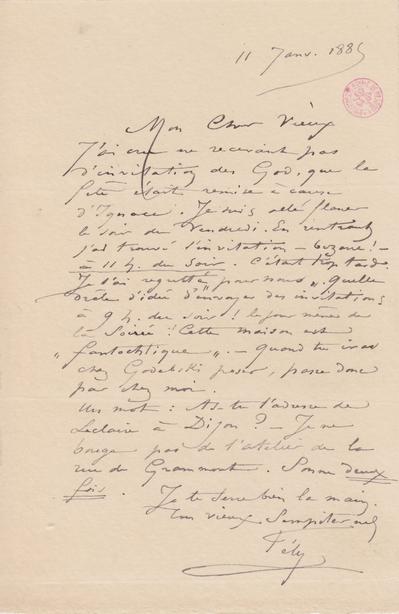 11 Janv. 1885
Mon Cher Vieux
J'ai cru ne recevant pas
d'invitation des God, que la
fête était remise à cause
d'Ignace. Je suis allé flaner
le soir du Vendredi. En rentrant
j'ai trouvé l'invitation – bizarre! –
à 11 h. du soir. C'était trop tard.
Je l'ai regretté pour nous. Quelle
drôle d'idée d'envoyer des invitations
à 9 h. du soir! le jour même de
la Soirée! Cette maison est
"fantochtique". – Quand tu iras
chez Godebski poser, passe donc
par chez moi.
Un mot: As-tu l'adresse de
Leclaire à Dijon? – Je ne
bouge pas de l'atelier de la
rue de Grammont. Sonne deux
fois.
Je te serre bien la main.
Ton vieux Sempiternel
Fély